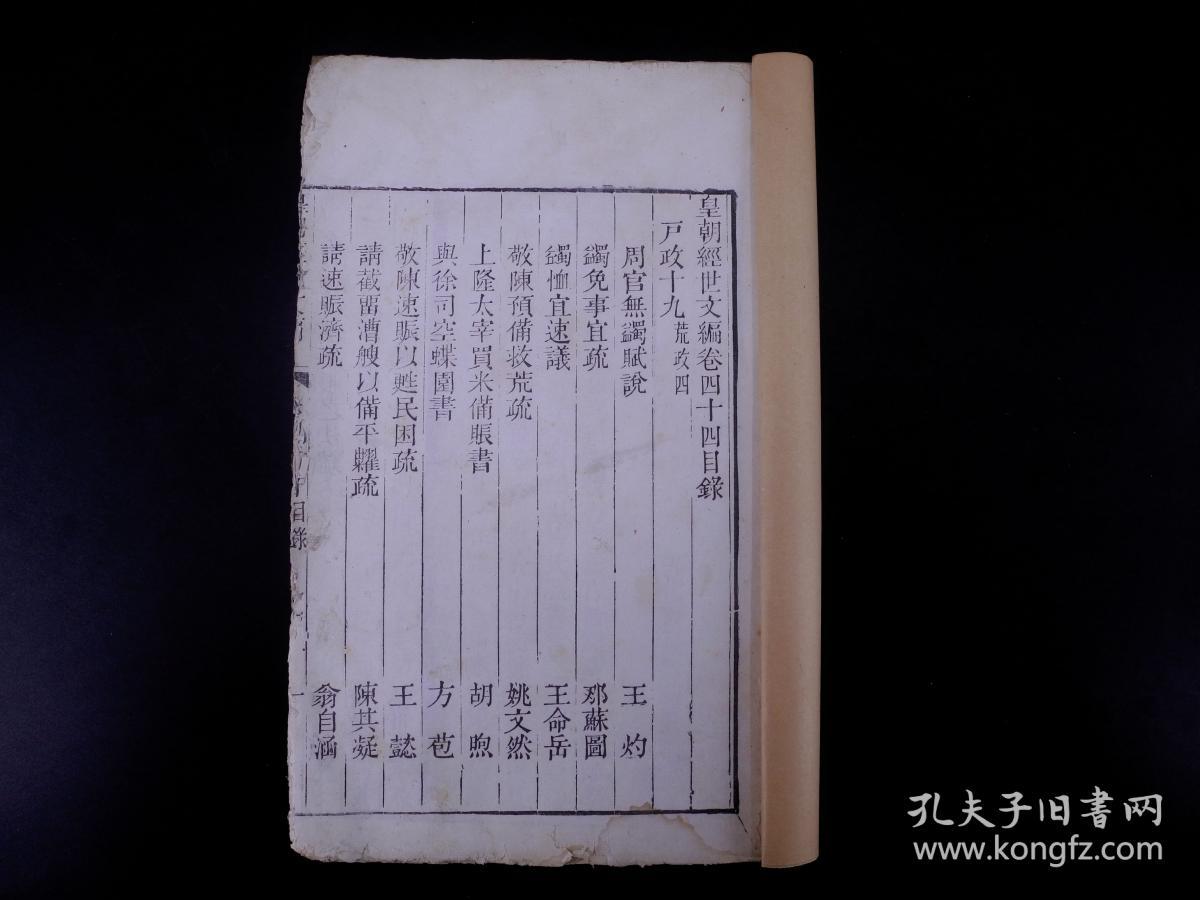 皇朝經世文編卷四十四目錄
戸政十九 荒政四
周官無蠲賦說 王灼
蠲免事宜疏 那蘇圖
蠲恤宜速議 王命岳
敬陳預備救荒疏 姚文然
上隆太宰買米備賬書 胡煦
與徐司空蝶園書 方苞
敬陳速賑以甦民困疏 王懿
請截畱漕艘以備平糶疏 陳其凝
請速賑濟疏 翁自涵
目錄
一
孔夫子旧书网
www.kongfz.com